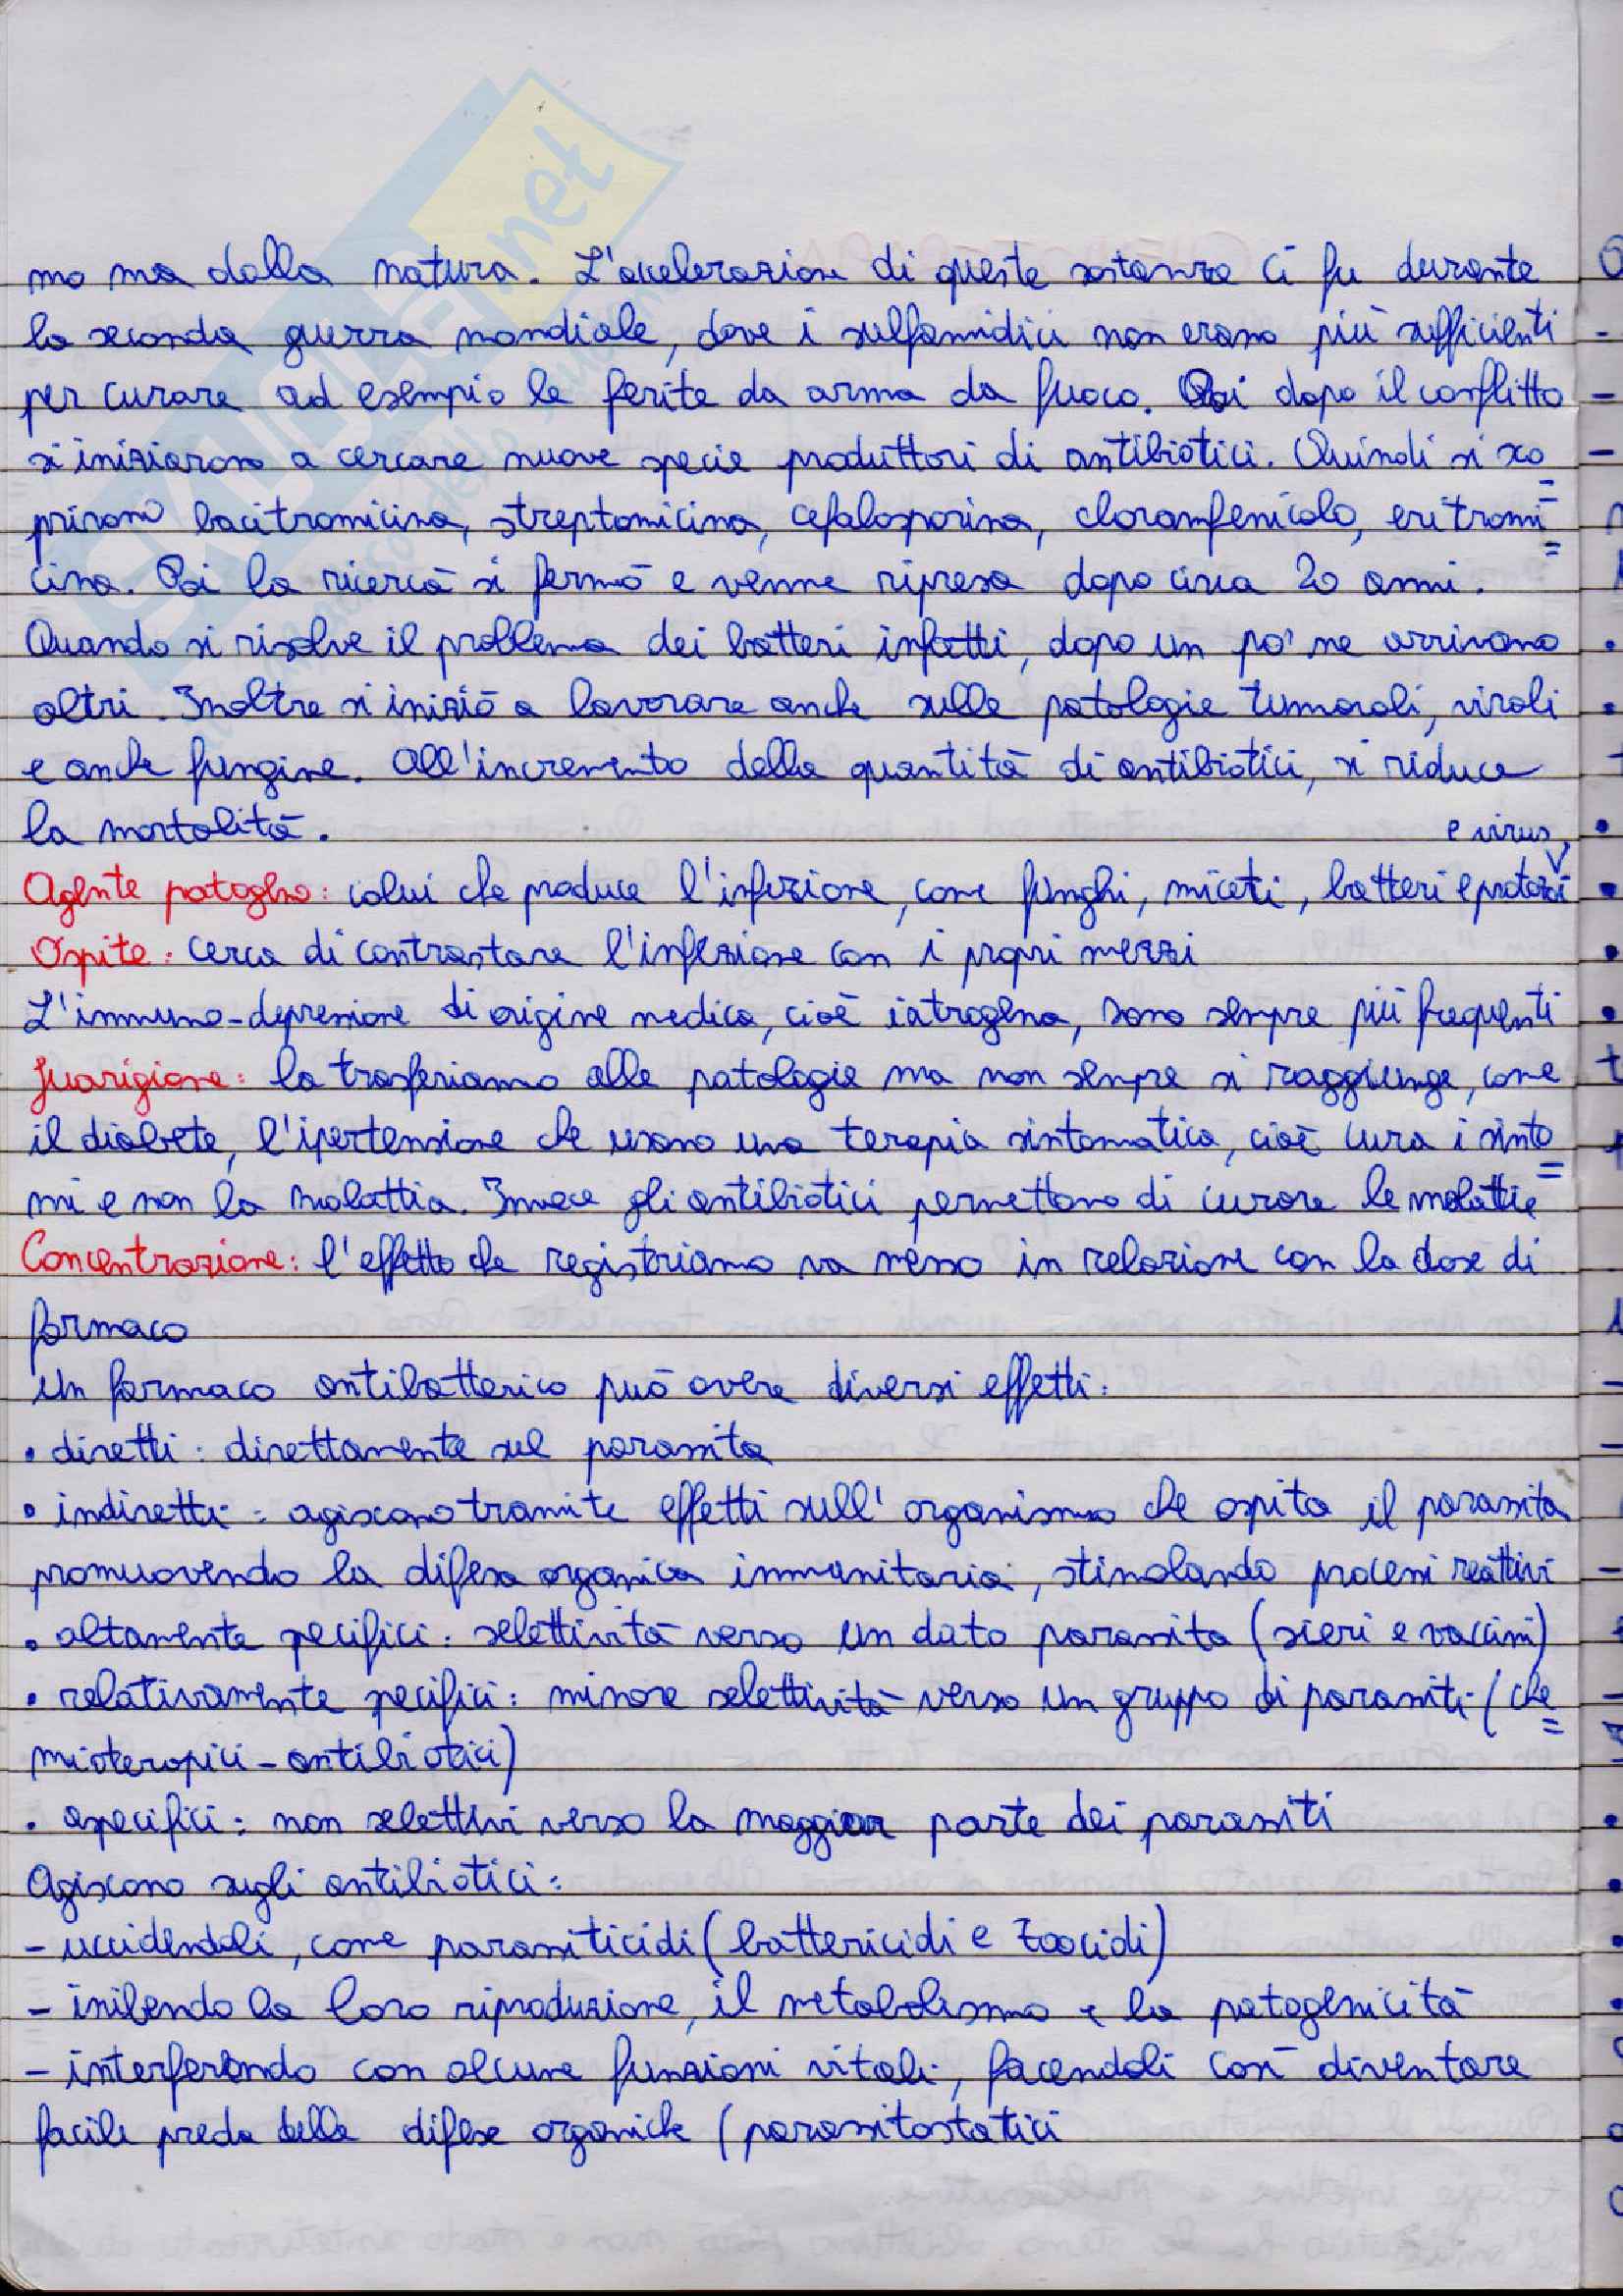 mo ma dalla natura. L'accelerazione di queste sostanze ci fu durante
la seconda guerra mondiale, dove i sulfamidici non erano più sufficienti
per curare ad esempio le ferite da arma da fuoco. Poi dopo il conflitto
si iniziarono a cercare nuove specie produttori di antibiotici. Quindi si sco=
prirono bacitromicina, streptomicina, cefalosporina, cloramfenicolo, eritromi=
cina. Poi la ricerca si fermò e venne ripresa dopo circa 20 anni.
Quando si risolve il problema dei batteri infetti, dopo un po' ne arrivano
altri. Inoltre si iniziò a lavorare anche sulle patologie tumorali, virali
e anche fungine. All'incremento della quantità di antibiotici, si riduce
la mortalità.
e virus
Agente patogeno: colui che produce l'infezione, come funghi, miceti, batteri e protozoi
Ospite: cerca di contrastare l'infezione con i propri mezzi
L'immuno-depressione di origine medica, cioè iatrogena, sono sempre più frequenti
Guarigione: la trasferiamo alle patologie ma non sempre si raggiunge, come
il diabete, l'ipertensione che usano una terapia sintomatica, cioè cura i sinto=
mi e non la malattia. Invece gli antibiotici permettono di curare le malattie
Concentrazione: l'effetto che registriamo va messo in relazione con la dose di
farmaco
Un farmaco antibatterico può avere diversi effetti:
• diretti: direttamente sul parassita
• indiretti: agiscono tramite effetti sull'organismo che ospita il parassita
promuovendo la difesa organica immunitaria, stimolando processi reattivi
• altamente specifici: selettività verso un dato parassita (sieri e vaccini)
• relativamente specifici: minore selettività verso un gruppo di parassiti (che=
mioterapici-antibiotici)
• aspecifici: non selettivi verso la maggior parte dei parassiti
Agiscono sugli antibiotici:
- uccidendoli, come parassiticidi (battericidi e zoocidi)
- inibendo la loro riproduzione, il metabolismo e la patogenicità
- interferendo con alcune funzioni vitali, facendoli così diventare
facile preda delle difese organiche (parassitostatici
SKUOLA.net